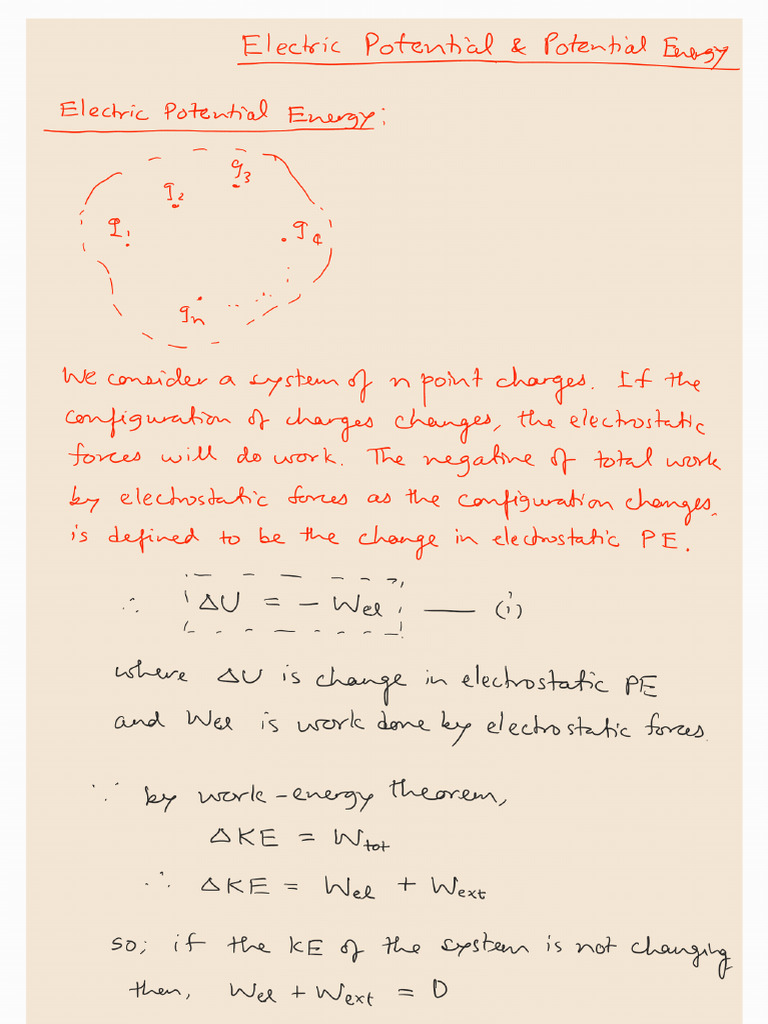 Electric Potential & Potential Energy
Electric Potential Energy:
q3
q2
q1
q4
qn
We consider a system of n point charges. If the
configuration of charges changes, the electrostatic
forces will do work. The negative of total work
by electrostatic forces as the configuration changes,
is defined to be the change in electrostatic PE.
∴ ΔU = - Wel —— (i)
where ΔU is change in electrostatic PE
and Wel is work done by electrostatic forces.
∵ by work-energy theorem,
ΔKE = Wtot
∴ ΔKE = Wel + Wext
so; if the KE of the system is not changing
then, Wel + Wext = 0